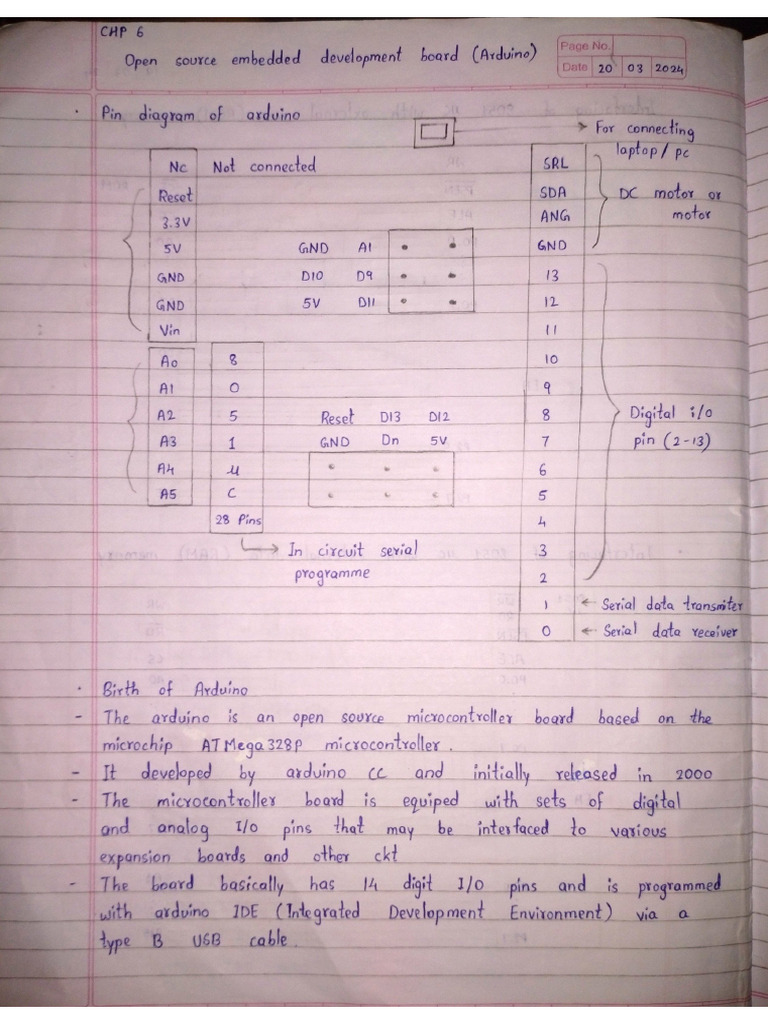 CHP 6
Open source embedded development board (Arduino)
Page No.
Date 20 03 2024
• Pin diagram of arduino
For connecting
laptop / pc
Nc Not connected SRL
Reset SDA DC motor or
3.3V ANG motor
5V GND A1 GND
GND D10 D9 13
GND 5V D11 12
Vin 11
A0 8 10
A1 0 9
A2 5 Reset D13 D12 8 Digital i/o
A3 1 GND Dn 5V 7 pin (2-13)
A4 μ 6
A5 C 5
28 Pins 4
In circuit serial 3
programme 2
1 ← Serial data transmiter
0 ← Serial data receiver
• Birth of Arduino
- The arduino is an open source microcontroller board based on the
microchip ATMega328P microcontroller.
- It developed by arduino CC and initially released in 2000
- The microcontroller board is equiped with sets of digital
and analog I/O pins that may be interfaced to various
expansion boards and other ckt
- The board basically has 14 digit I/O pins and is programmed
with arduino IDE (Integrated Development Environment) via a
type B USB cable.